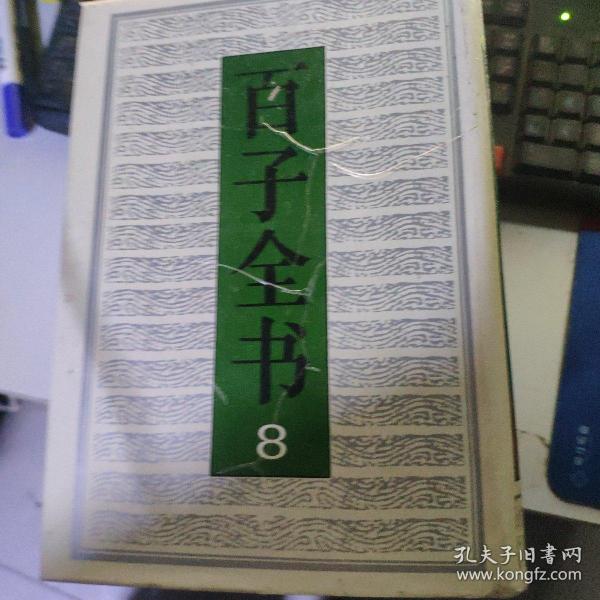 百子全书
8
孔夫子旧書网
www.kongfz.com